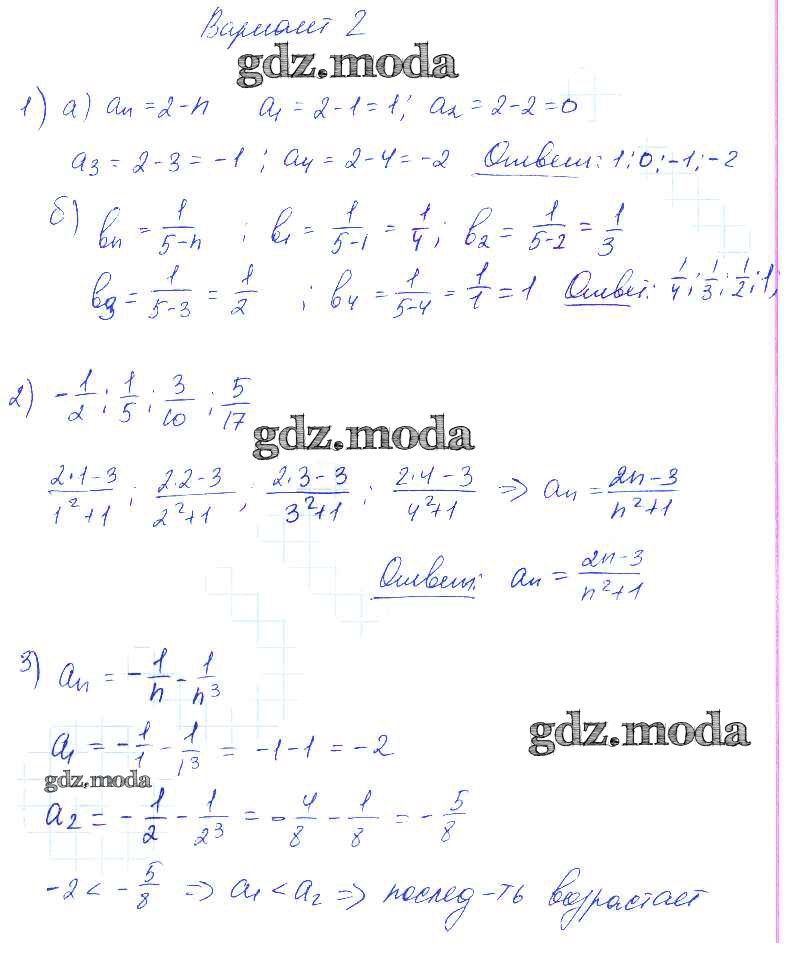 Вариант 2
gdz.moda
1) а) aₙ = 2-n a₁ = 2-1 = 1; a₂ = 2-2 = 0
a₃ = 2-3 = -1 ; a₄ = 2-4 = -2 Ответ: 1; 0; -1; -2
б) bₙ = 1/(5-n) ; b₁ = 1/(5-1) = 1/4; b₂ = 1/(5-2) = 1/3
b₃ = 1/(5-3) = 1/2 ; b₄ = 1/(5-4) = 1/1 = 1 Ответ: 1/4; 1/3; 1/2; 1;
2) -1/2; 1/5; 3/10; 5/17
gdz.moda
(2·1-3)/(1²+1); (2·2-3)/(2²+1); (2·3-3)/(3²+1); (2·4-3)/(4²+1) => aₙ = (2n-3)/(n²+1)
Ответ: aₙ = (2n-3)/(n²+1)
3) aₙ = -1/n - 1/n³
a₁ = -1/1 - 1/1³ = -1-1 = -2
gdz.moda
gdz.moda
a₂ = -1/2 - 1/2³ = -4/8 - 1/8 = -5/8
-2 < -5/8 => a₁ < a₂ => послед-ть возрастает